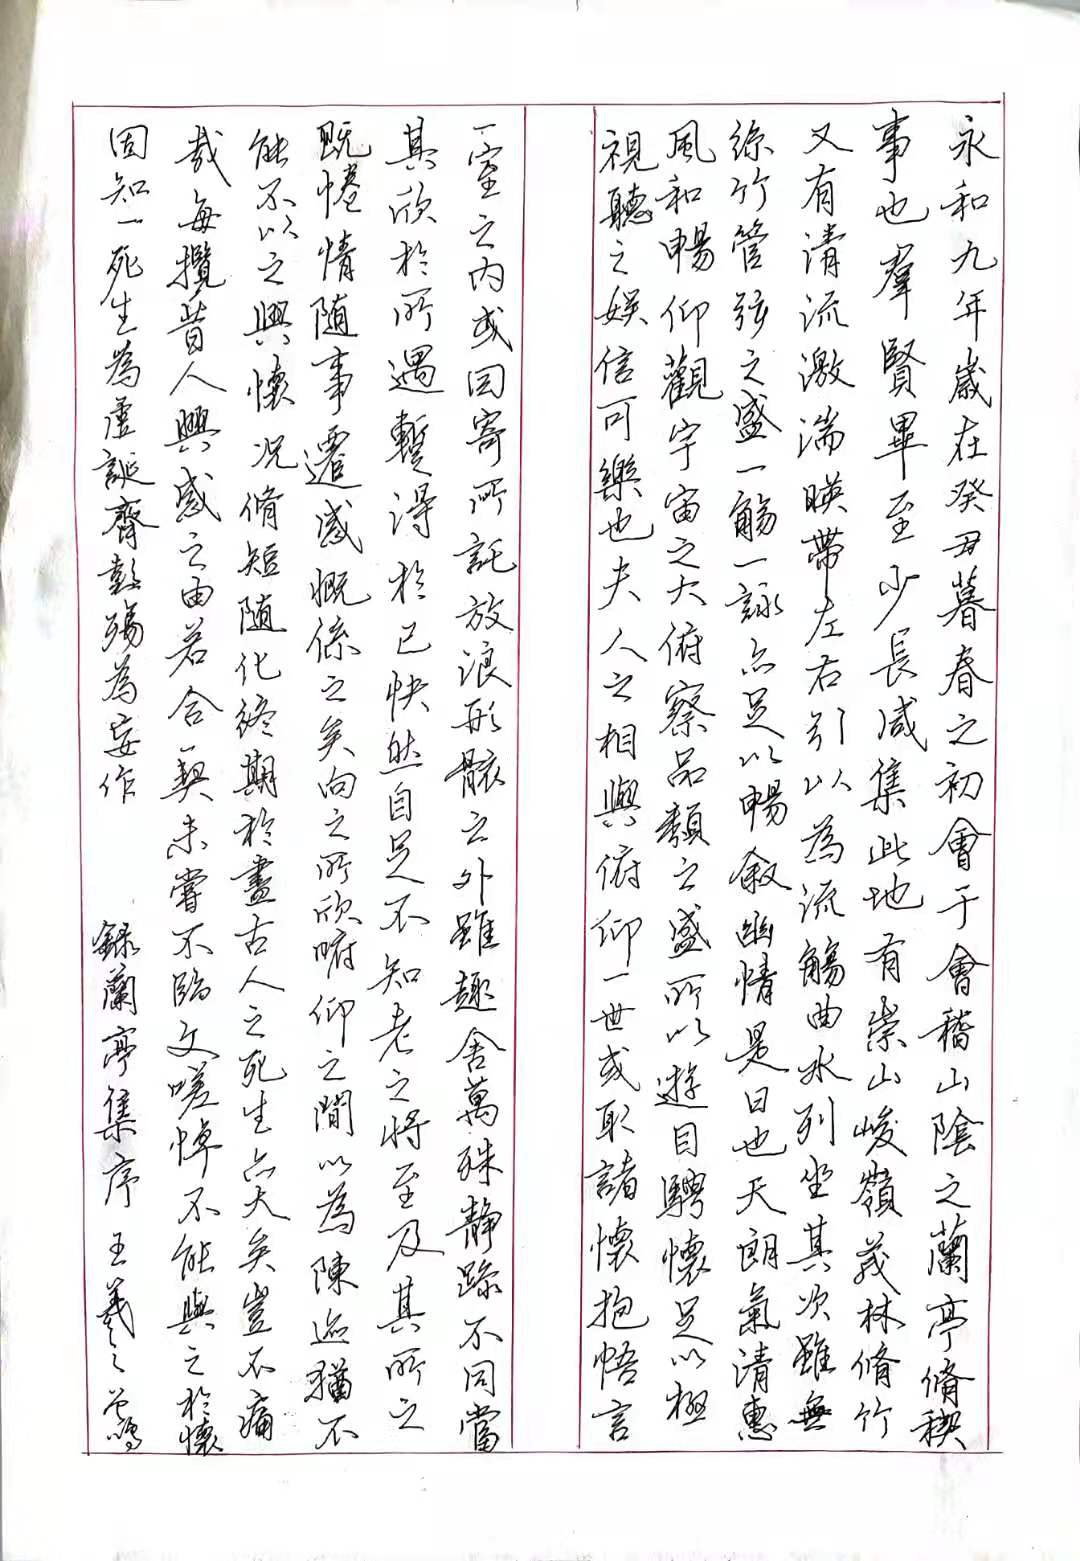 永和九年歲在癸丑暮春之初會于會稽山陰之蘭亭脩稧
事也羣賢畢至少長咸集此地有崇山峻嶺茂林脩竹
又有清流激湍暎帶左右引以為流觴曲水列坐其次雖無
絲竹管弦之盛一觴一詠亦足以暢敘幽情是日也天朗氣清惠
風和暢仰觀宇宙之大俯察品類之盛所以遊目騁懷足以極
視聽之娛信可樂也夫人之相與俯仰一世或取諸懷抱悟言
一室之內或因寄所託放浪形骸之外雖趣舍萬殊靜躁不同當
其欣於所遇暫得於己快然自足不知老之將至及其所之
既惓情隨事遷感慨係之矣向之所欣俯仰之閒以為陳迹猶不
能不以之興懷況脩短隨化終期於盡古人之死生亦大矣豈不痛
哉每攬昔人興感之由若合一契未嘗不臨文嗟悼不能與之於懷
固知一死生為虛誕齊彭殤為妄作 錄蘭亭集序 王羲之